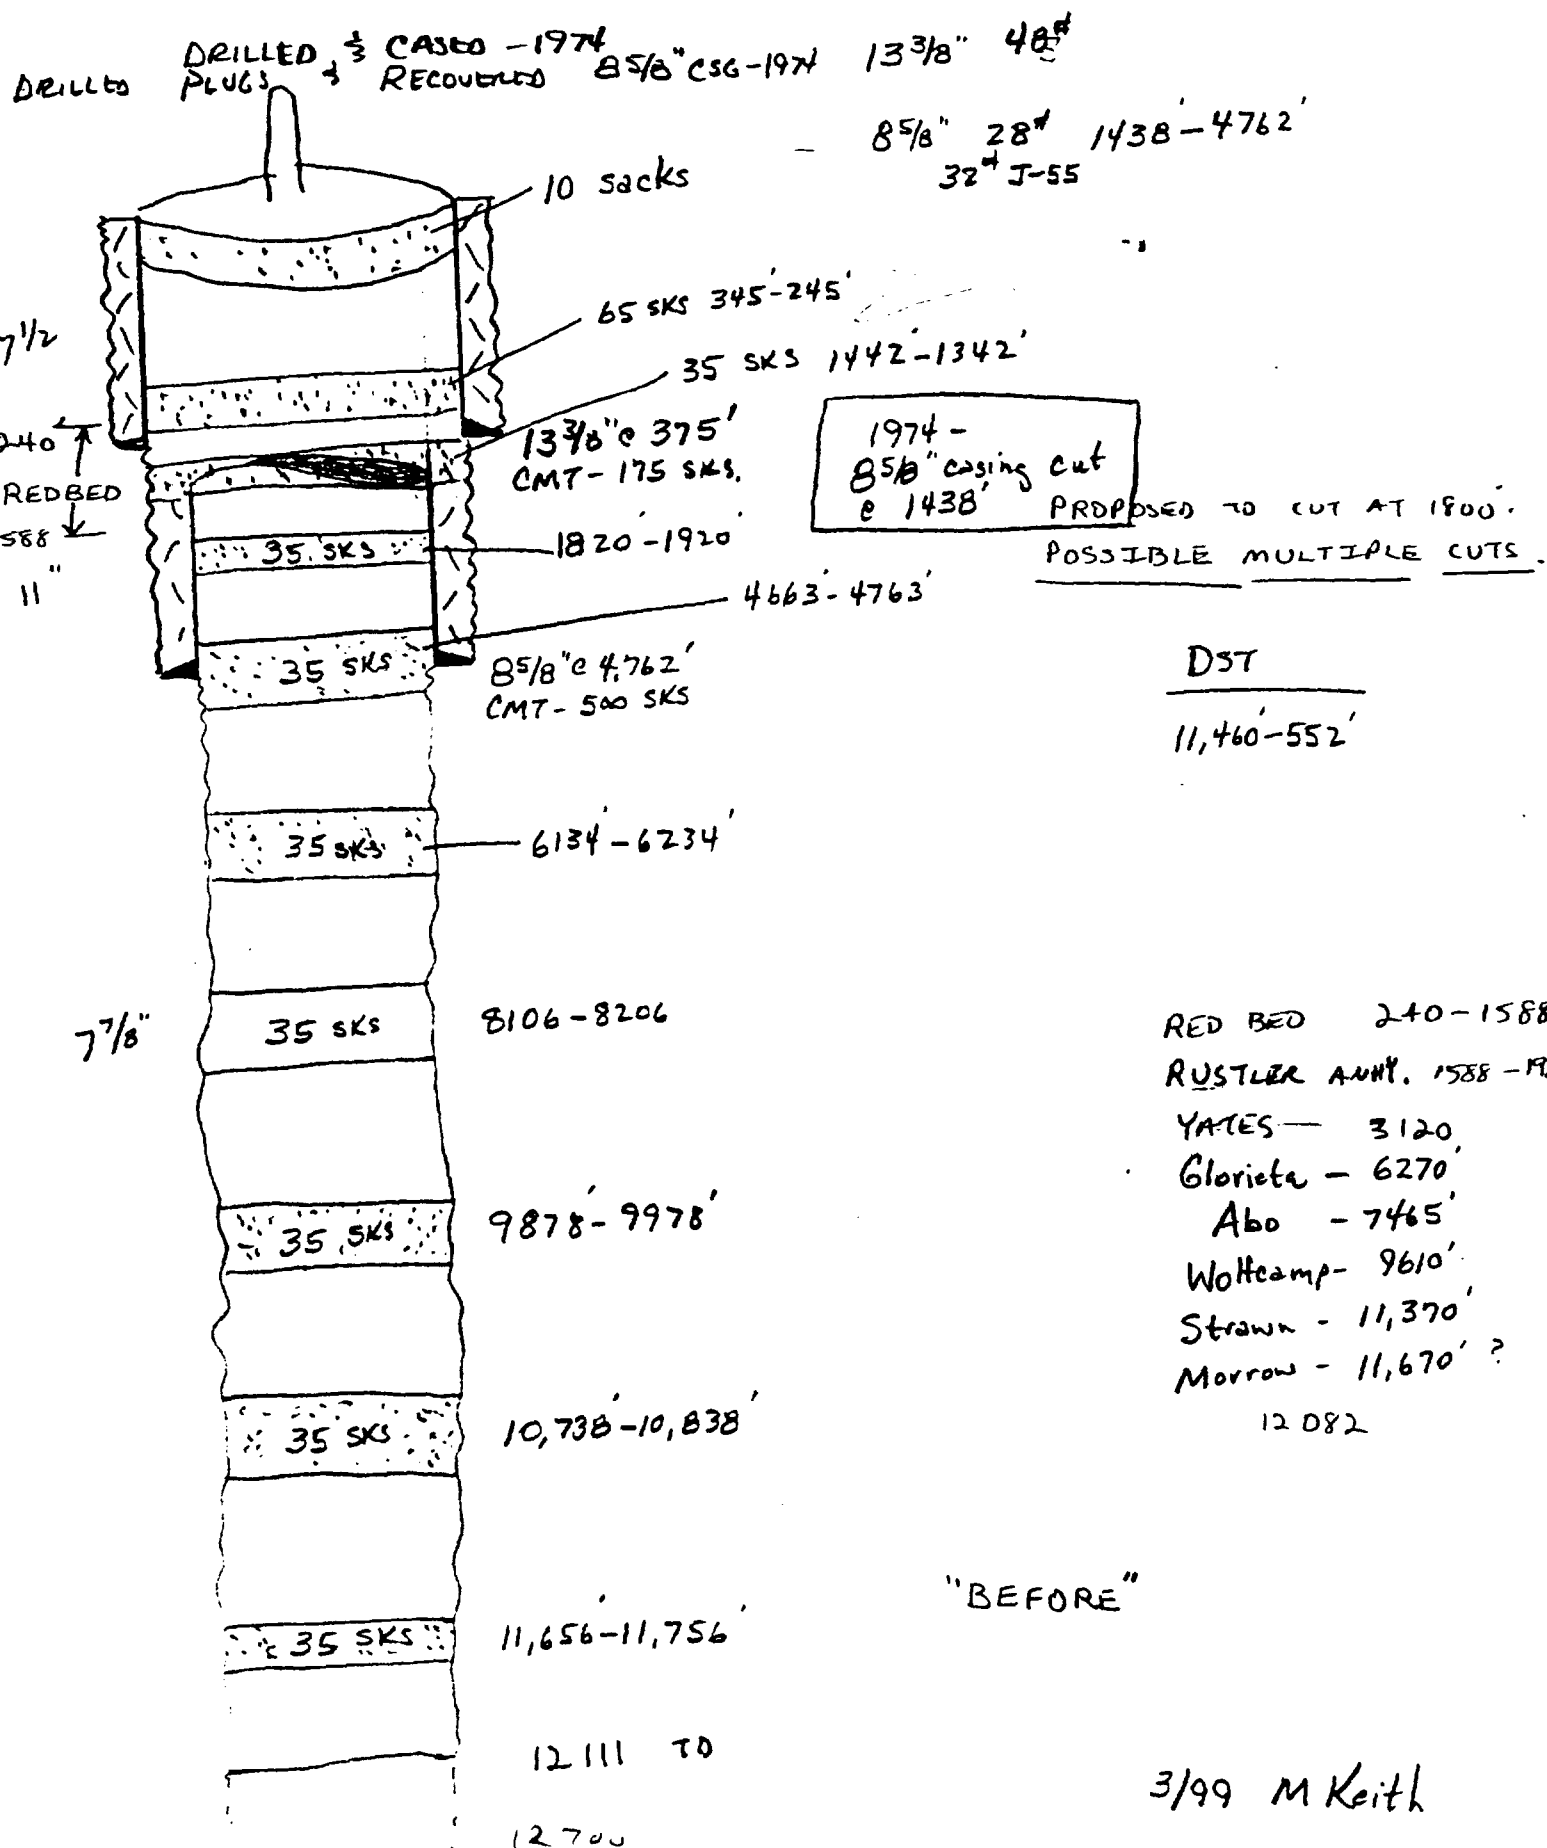 DRILLED & CASED - 1974
DRILLED PLUGS & RECOVERED 8 5/8" CSG - 1974
13 3/8" 48#
8 5/8" 28# 1438' - 4762'
32# J-55
10 sacks
65 SKS 345' - 245'
35 SKS 1442' - 1342'
7 1/2
240
REDBED
588
11"
13 3/8" @ 375'
CMT - 175 SKS.
1974 -
8 5/8" casing cut
@ 1438'
PROPOSED TO CUT AT 1800'.
POSSIBLE MULTIPLE CUTS.
35 SKS 1820' - 1920'
4663' - 4763'
35 SKS
8 5/8" @ 4,762'
CMT - 500 SKS
DST
11,460' - 552'
35 SKS 6134' - 6234'
7 7/8"
35 SKS 8106 - 8206
RED BED 240 - 1588
RUSTLER ANHY. 1588 - 19
YATES — 3120
Glorieta - 6270'
Abo - 7465'
Wolfcamp - 9610'
Strawn - 11,370'
Morrow - 11,670' ?
12 082
35 SKS 9878' - 9978'
35 SKS 10,738' - 10,838'
"BEFORE"
35 SKS 11,656' - 11,756'
12 111 TD
12 700
3/99 M Keith